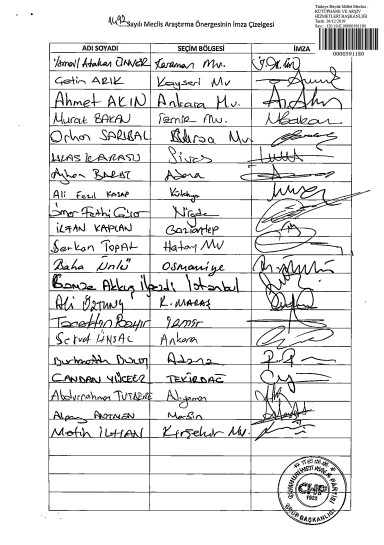 Türkiye Büyük Millet Meclisi
KÜTÜPHANE VE ARŞİV
HİZMETLERİ BAŞKANLIĞI
Tarih: 26/12/2018
0000591180
1492 Sayılı Meclis Araştırma Önergesinin İmza Çizelgesi
ADI SOYADI SEÇİM BÖLGESİ İMZA
İsmail Atakan ÜNVER Karaman Mv.
Çetin ARIK Kayseri Mv
Ahmet AKIN Ankara Mv.
Murat BAKAN İzmir Mv.
Orhan SARIBAL Bursa Mv.
ULAŞ KARASU Sivas
Ayhan BARUT Adana
Ali Fazıl KASAP Kütahya
Ömer Fethi Gürer Niğde
İRFAN KAPLAN Gaziantep
Serkan TOPAL Hatay Mv
Baha ÜNLÜ OSMANİYE
Gamze Akkuş İlgezdi İstanbul
Ali ÖZTUNÇ K. MARAŞ
Tacettin Bayır İzmir
Servet ÜNSAL Ankara
Burhanettin BULUT Adana
CANDAN YÜCEER TEKİRDAĞ
Abdurrahman TUTDERE Adıyaman
Alpay ANTMEN Mersin
Metin İLHAN Kırşehir Mv.
CHP
1923